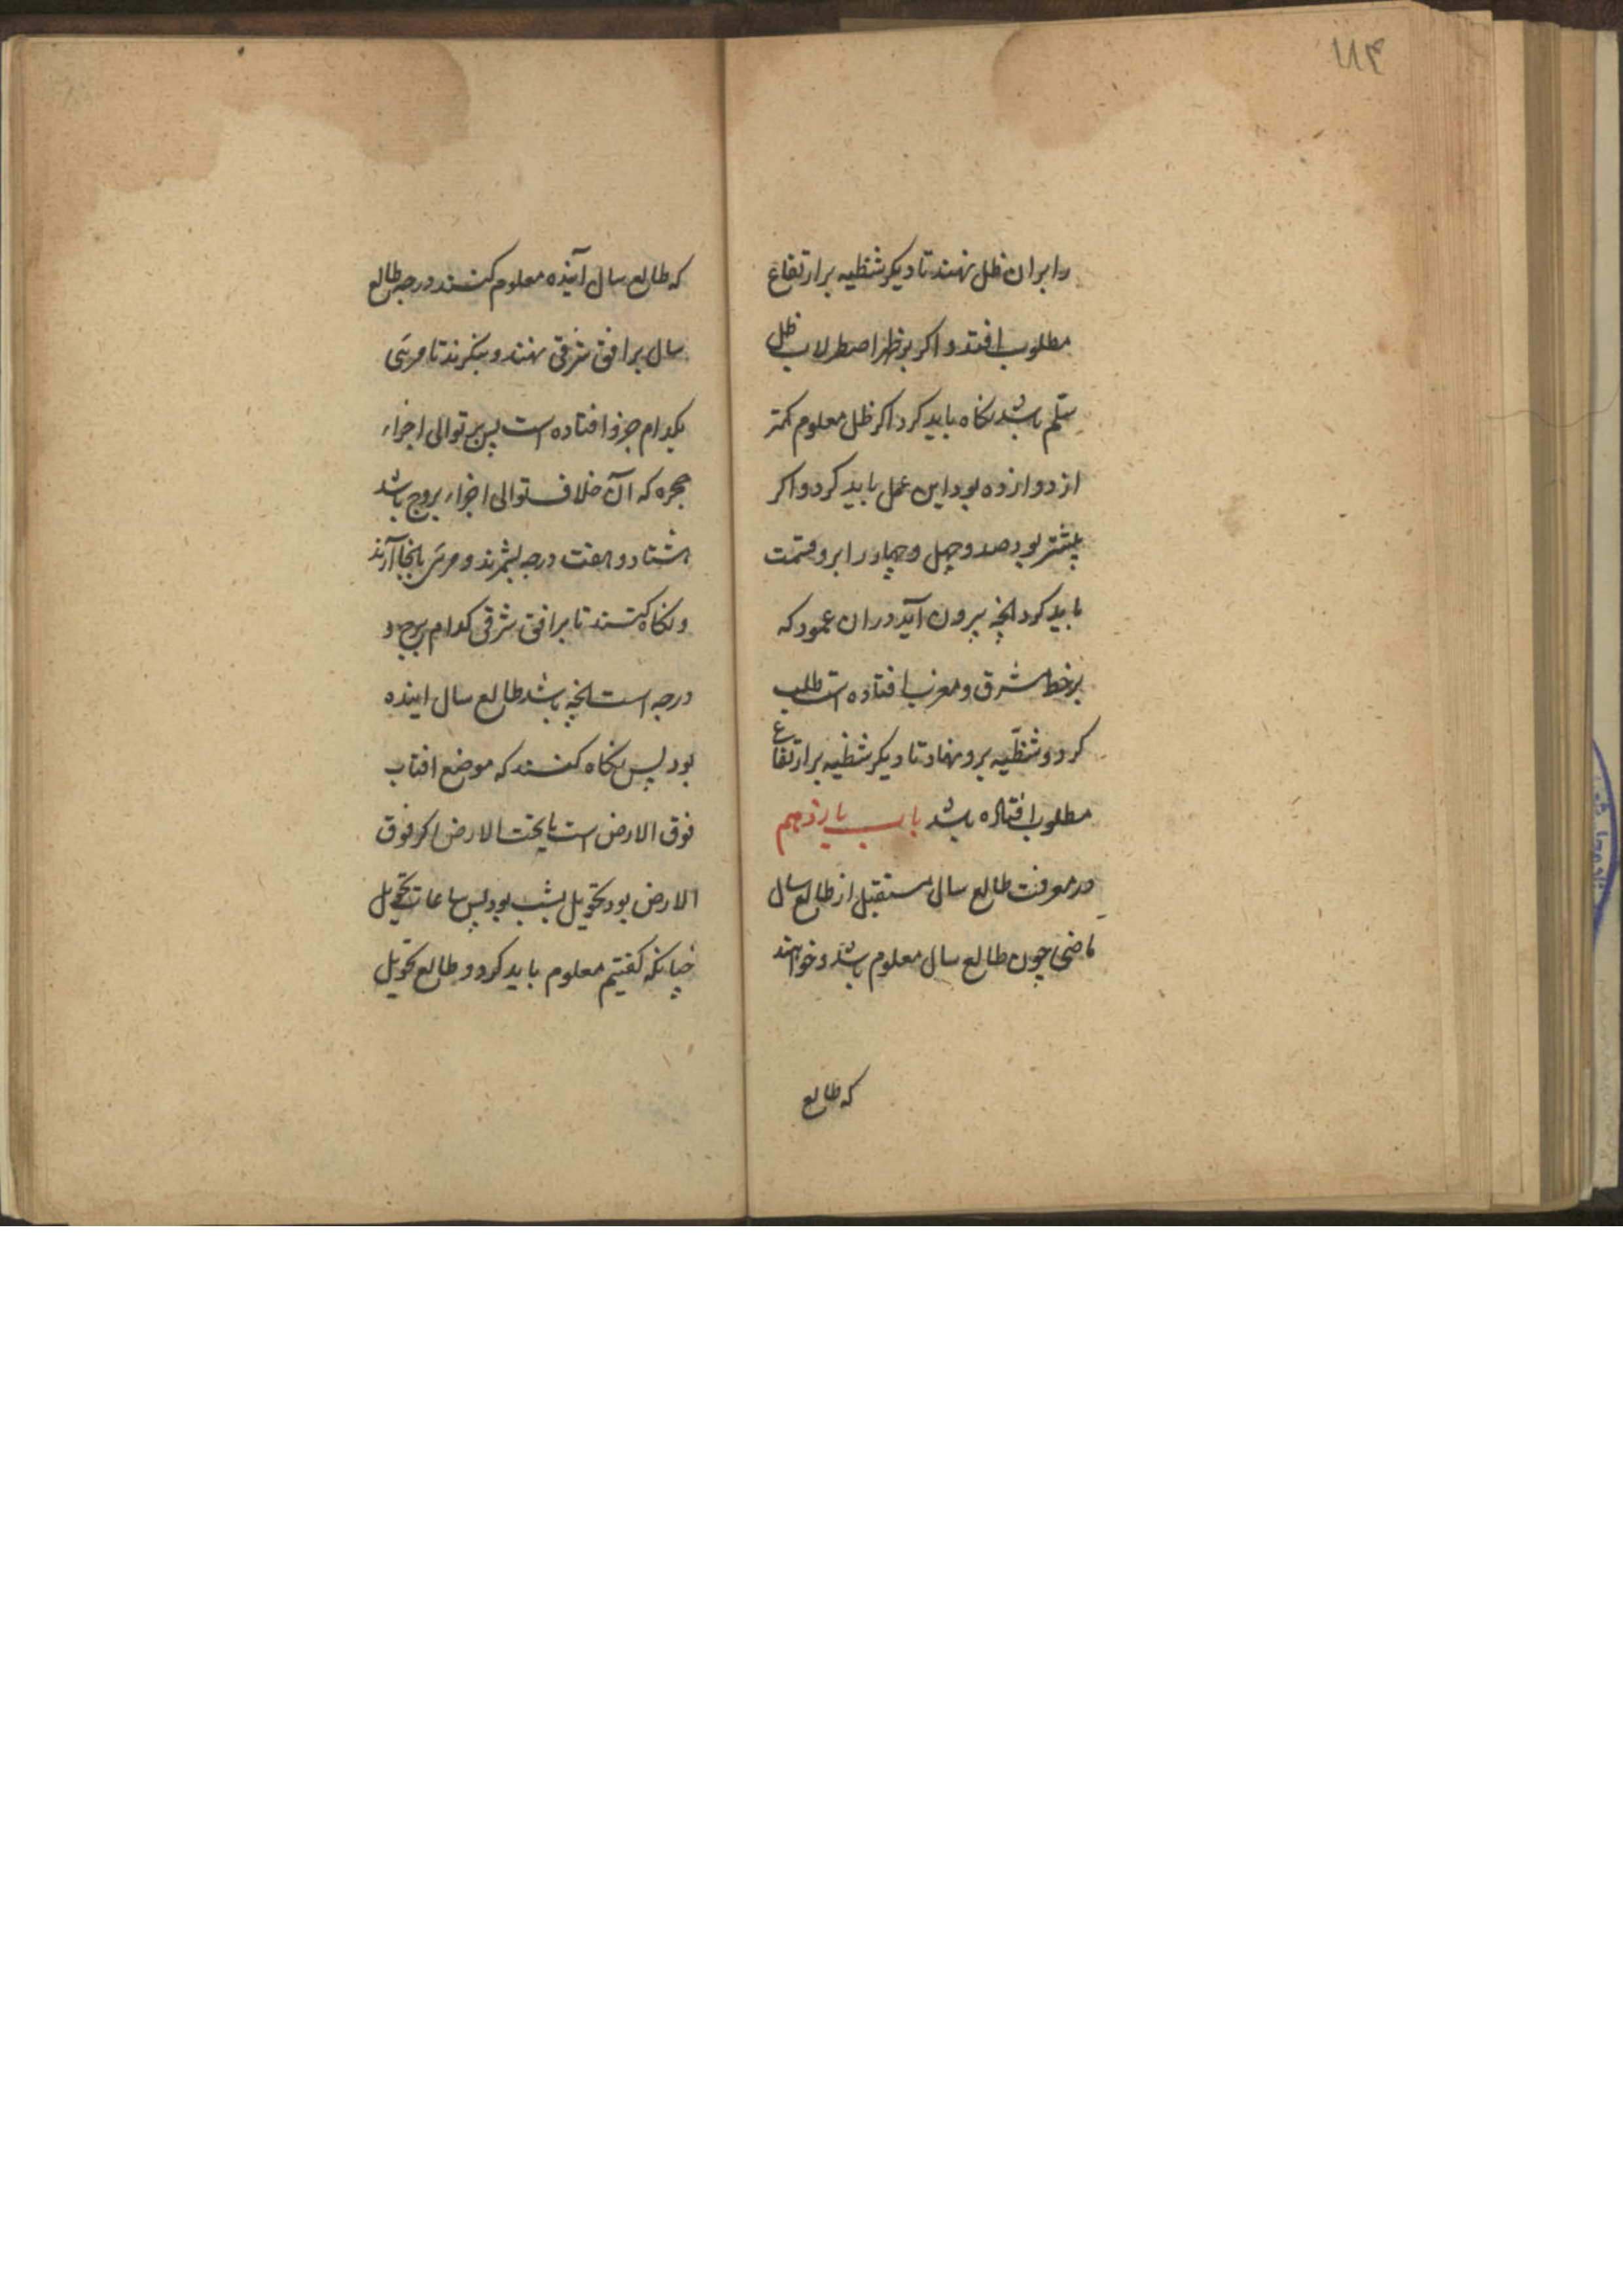 ۱۱۴
را بران ظل نهند تا دیکر شظیه بر ارتفاع
مطلوب افتد و اکر بر ظهر اصطرلاب ظل
سلّم باشد نکاه باید کرد اکر ظل معلوم کمتر
از دوازده بود این عمل باید کرد و اکر
بیشتر بود صد و چهل و چهار را برو قسمت
باید کرد انچه بیرون آید دران عمود که
بر خط مشرق و مغرب افتاده است طلب
کرد و شظّیه برو نهاد تا دیکر شظیه بر ارتفاع
مطلوب افتاده باشد باب یازدهم
در معرفت طالع سال مستقبل از طالع سال
ماضی چون طالع سال معلوم باشد و خواهند
که طالع
که طالع سال آینده معلوم کنند درجه طالع
سال بر افق شرقی نهند و بنکرند تا مری
بکدام جزو افتاده است پس بر توالی اجزاء
حجره که آن خلاف توالی اجزاء بروج باشد
هشتاد و هفت درجه بشمرند و مری بانجا آرند
و نکاه کنند تا بر افق شرقی کدام برج و
درجه است انچه باشد طالع سال اینده
بود پس نکاه کنند که موضع افتاب
فوق الارض است یا تحت الارض اکر فوق
الارض بود تحویل بشب بود پس ساعات تحویل
چنانکه کفتیم معلوم باید کرد و طالع تحویل